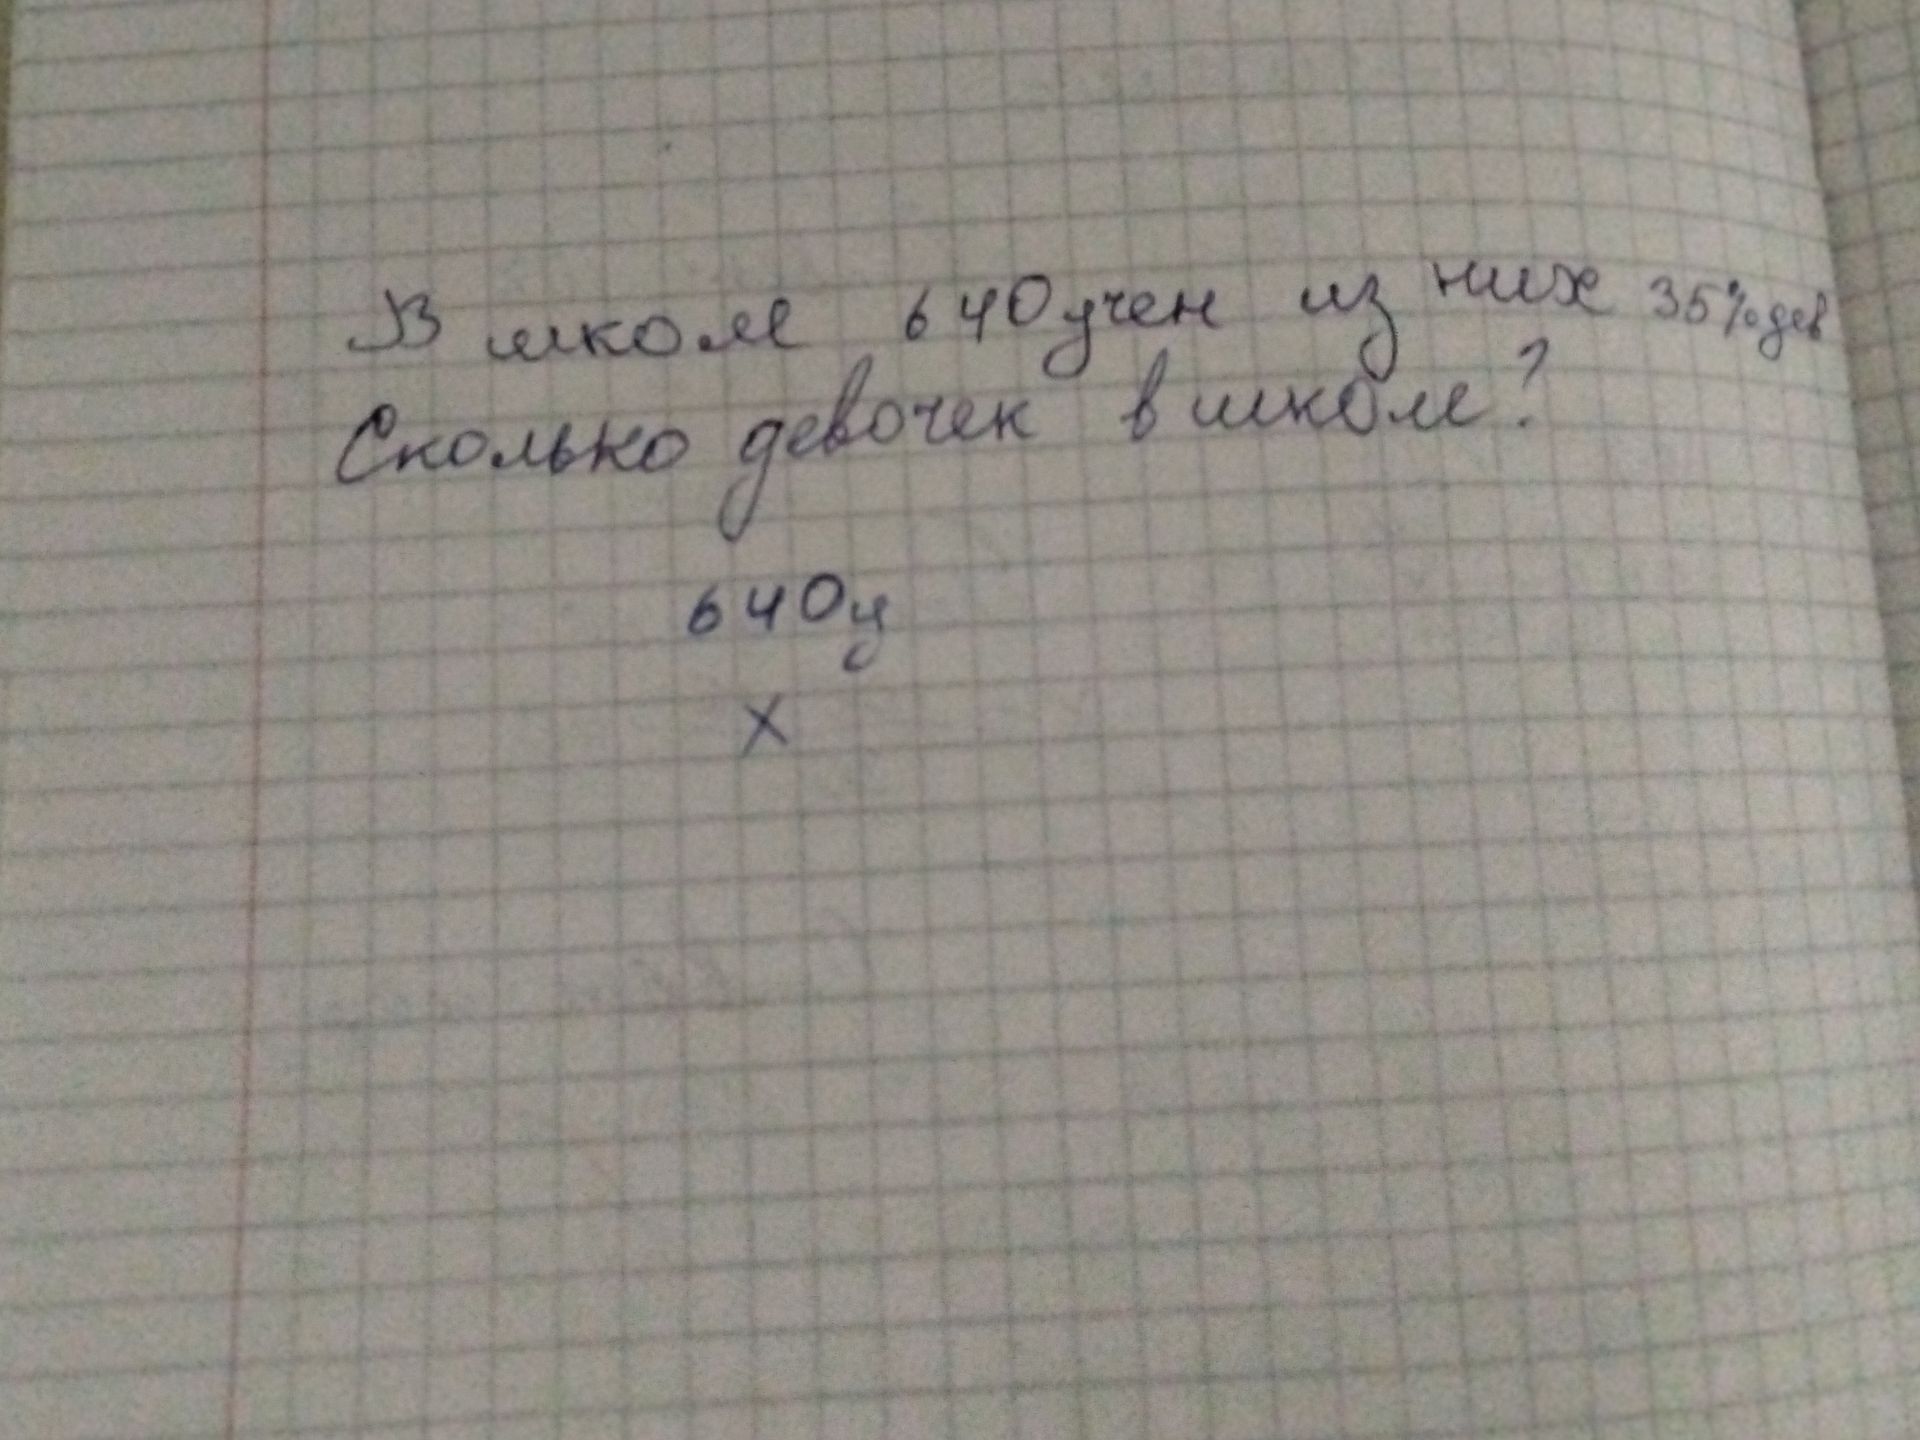 В школе 640 учен из них 35% дев
Сколько девочек в школе?
640 у
х